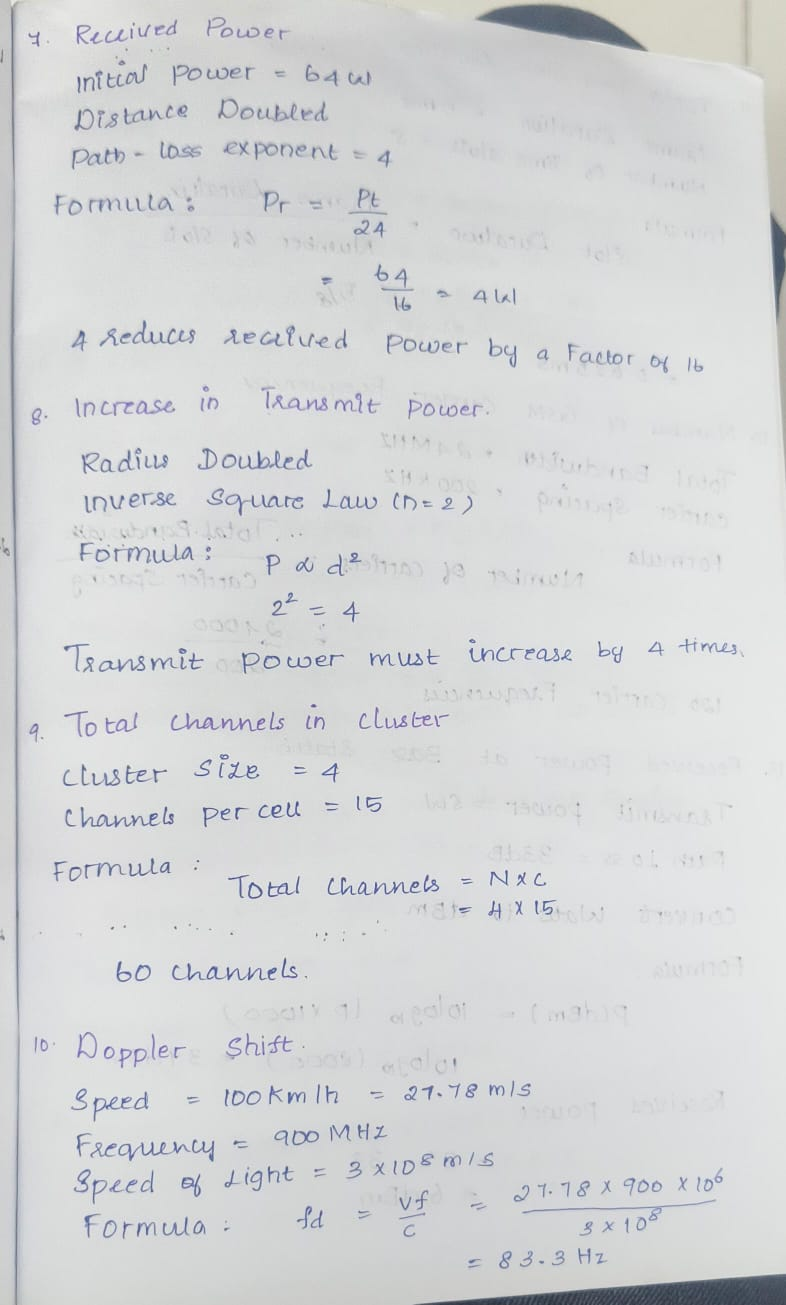 7. Received Power
Initial Power = 64 W
Distance Doubled
Path - loss exponent = 4
Formula : Pr = Pt / 24
= 64 / 16 = 4 W
4 reduces received power by a Factor of 16
8. Increase in Transmit power.
Radius Doubled
Inverse Square Law (n = 2)
Formula : P α d²
2² = 4
Transmit power must increase by 4 times.
9. Total channels in cluster
cluster size = 4
Channels per cell = 15
Formula :
Total Channels = N x C
= 4 x 15
60 channels.
10. Doppler Shift.
Speed = 100 Km/h = 27.78 m/s
Frequency = 900 MHz
Speed of Light = 3 x 10⁸ m/s
Formula : fd = Vf / C = 27.78 x 900 x 10⁶ / 3 x 10⁸
= 83.3 Hz